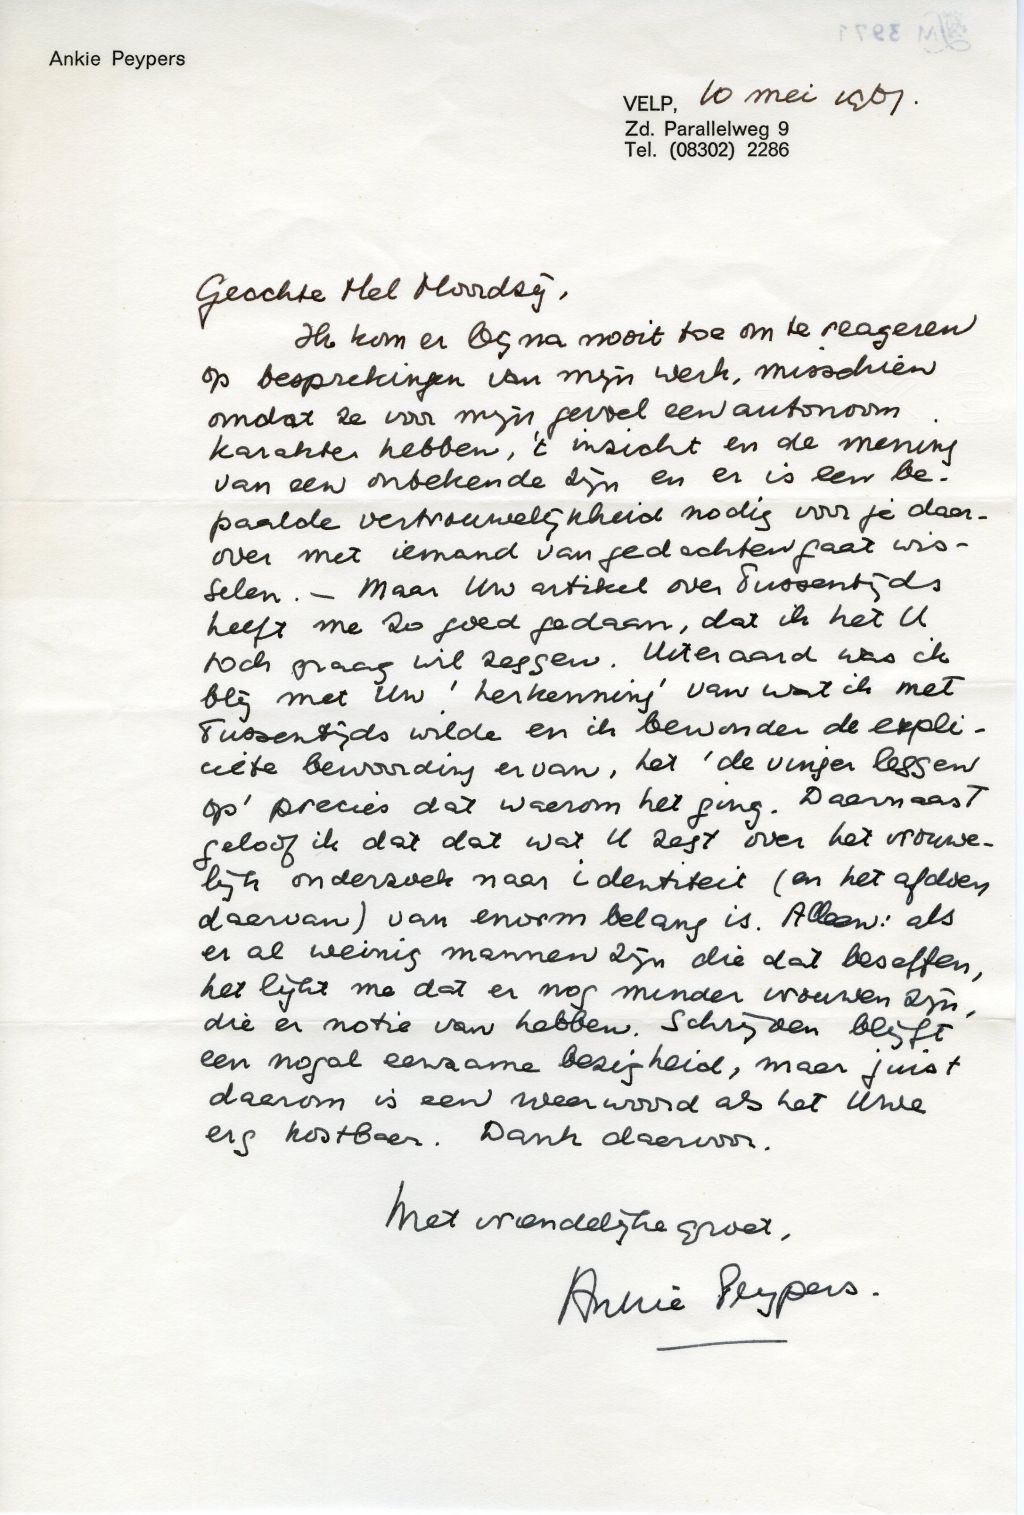 LM 3971
Ankie Peypers
VELP, 10 mei
Zd. Parallelweg 9
Tel. (08302) 2286
Geachte Nel Noordzij,
Ik kom er bijna nooit toe om te reageren
op besprekingen van mijn werk, misschien
omdat ze voor mijn gevoel een autonoom
karakter hebben, 't inzicht en de mening
van een onbekende zijn en er is een be-
paalde vertrouwelijkheid nodig voor je daar-
over met iemand van gedachten gaat wis-
selen. — Maar Uw artikel over Tussentijds
heeft me zo goed gedaan, dat ik het U
toch graag wil zeggen. Uiteraard was ik
blij met Uw 'herkenning' van wat ik met
Tussentijds wilde en ik bewonder de expli-
ciete bewoording ervan, het 'de vinger leggen
op' precies dat waarom het ging. Daarnaast
geloof ik dat dat wat U zegt over het vrouwe-
lijk onderzoek naar identiteit (en het afdoen
daarvan) van enorm belang is. Alleen: als
er al weinig mannen zijn die dat beseffen,
het lijkt me dat er nog minder vrouwen zijn,
die er notie van hebben. Schrijven blijft
een nogal eenzame bezigheid, maar juist
daarom is een weerwoord als het Uwe
erg kostbaar. Dank daarvoor.
Met vriendelijke groet,
Ankie Peypers.